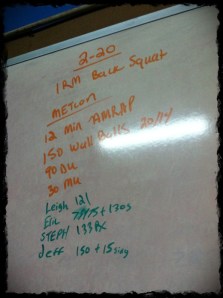 2-20
1RM Back Squat
METCON
12 Min AMRAP
150 Wall Balls 20/14
90 DU
30 MU
Leigh 121
STEPH 133 RX
Jeff 150 + 15